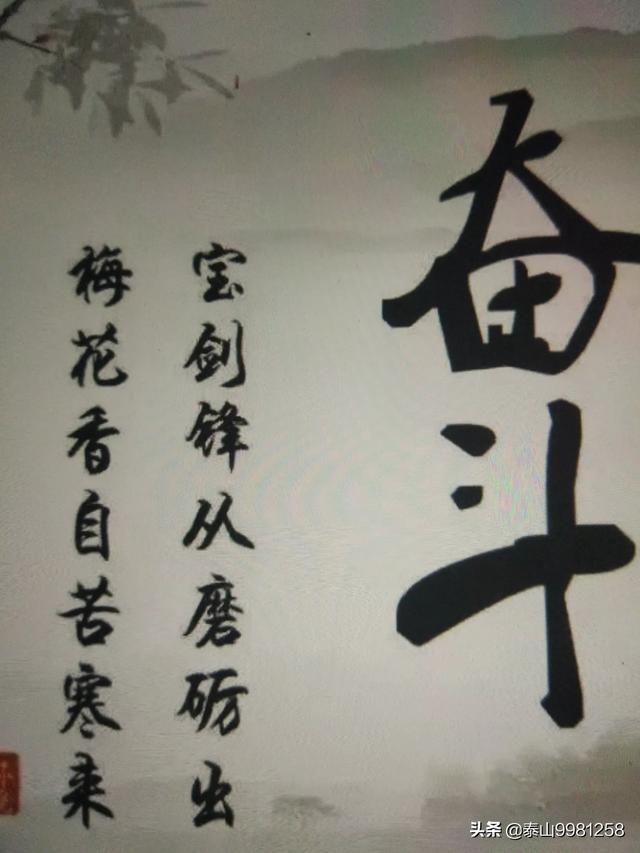 奋斗
宝剑锋从磨砺出
梅花香自苦寒来
头条 @泰山9981258